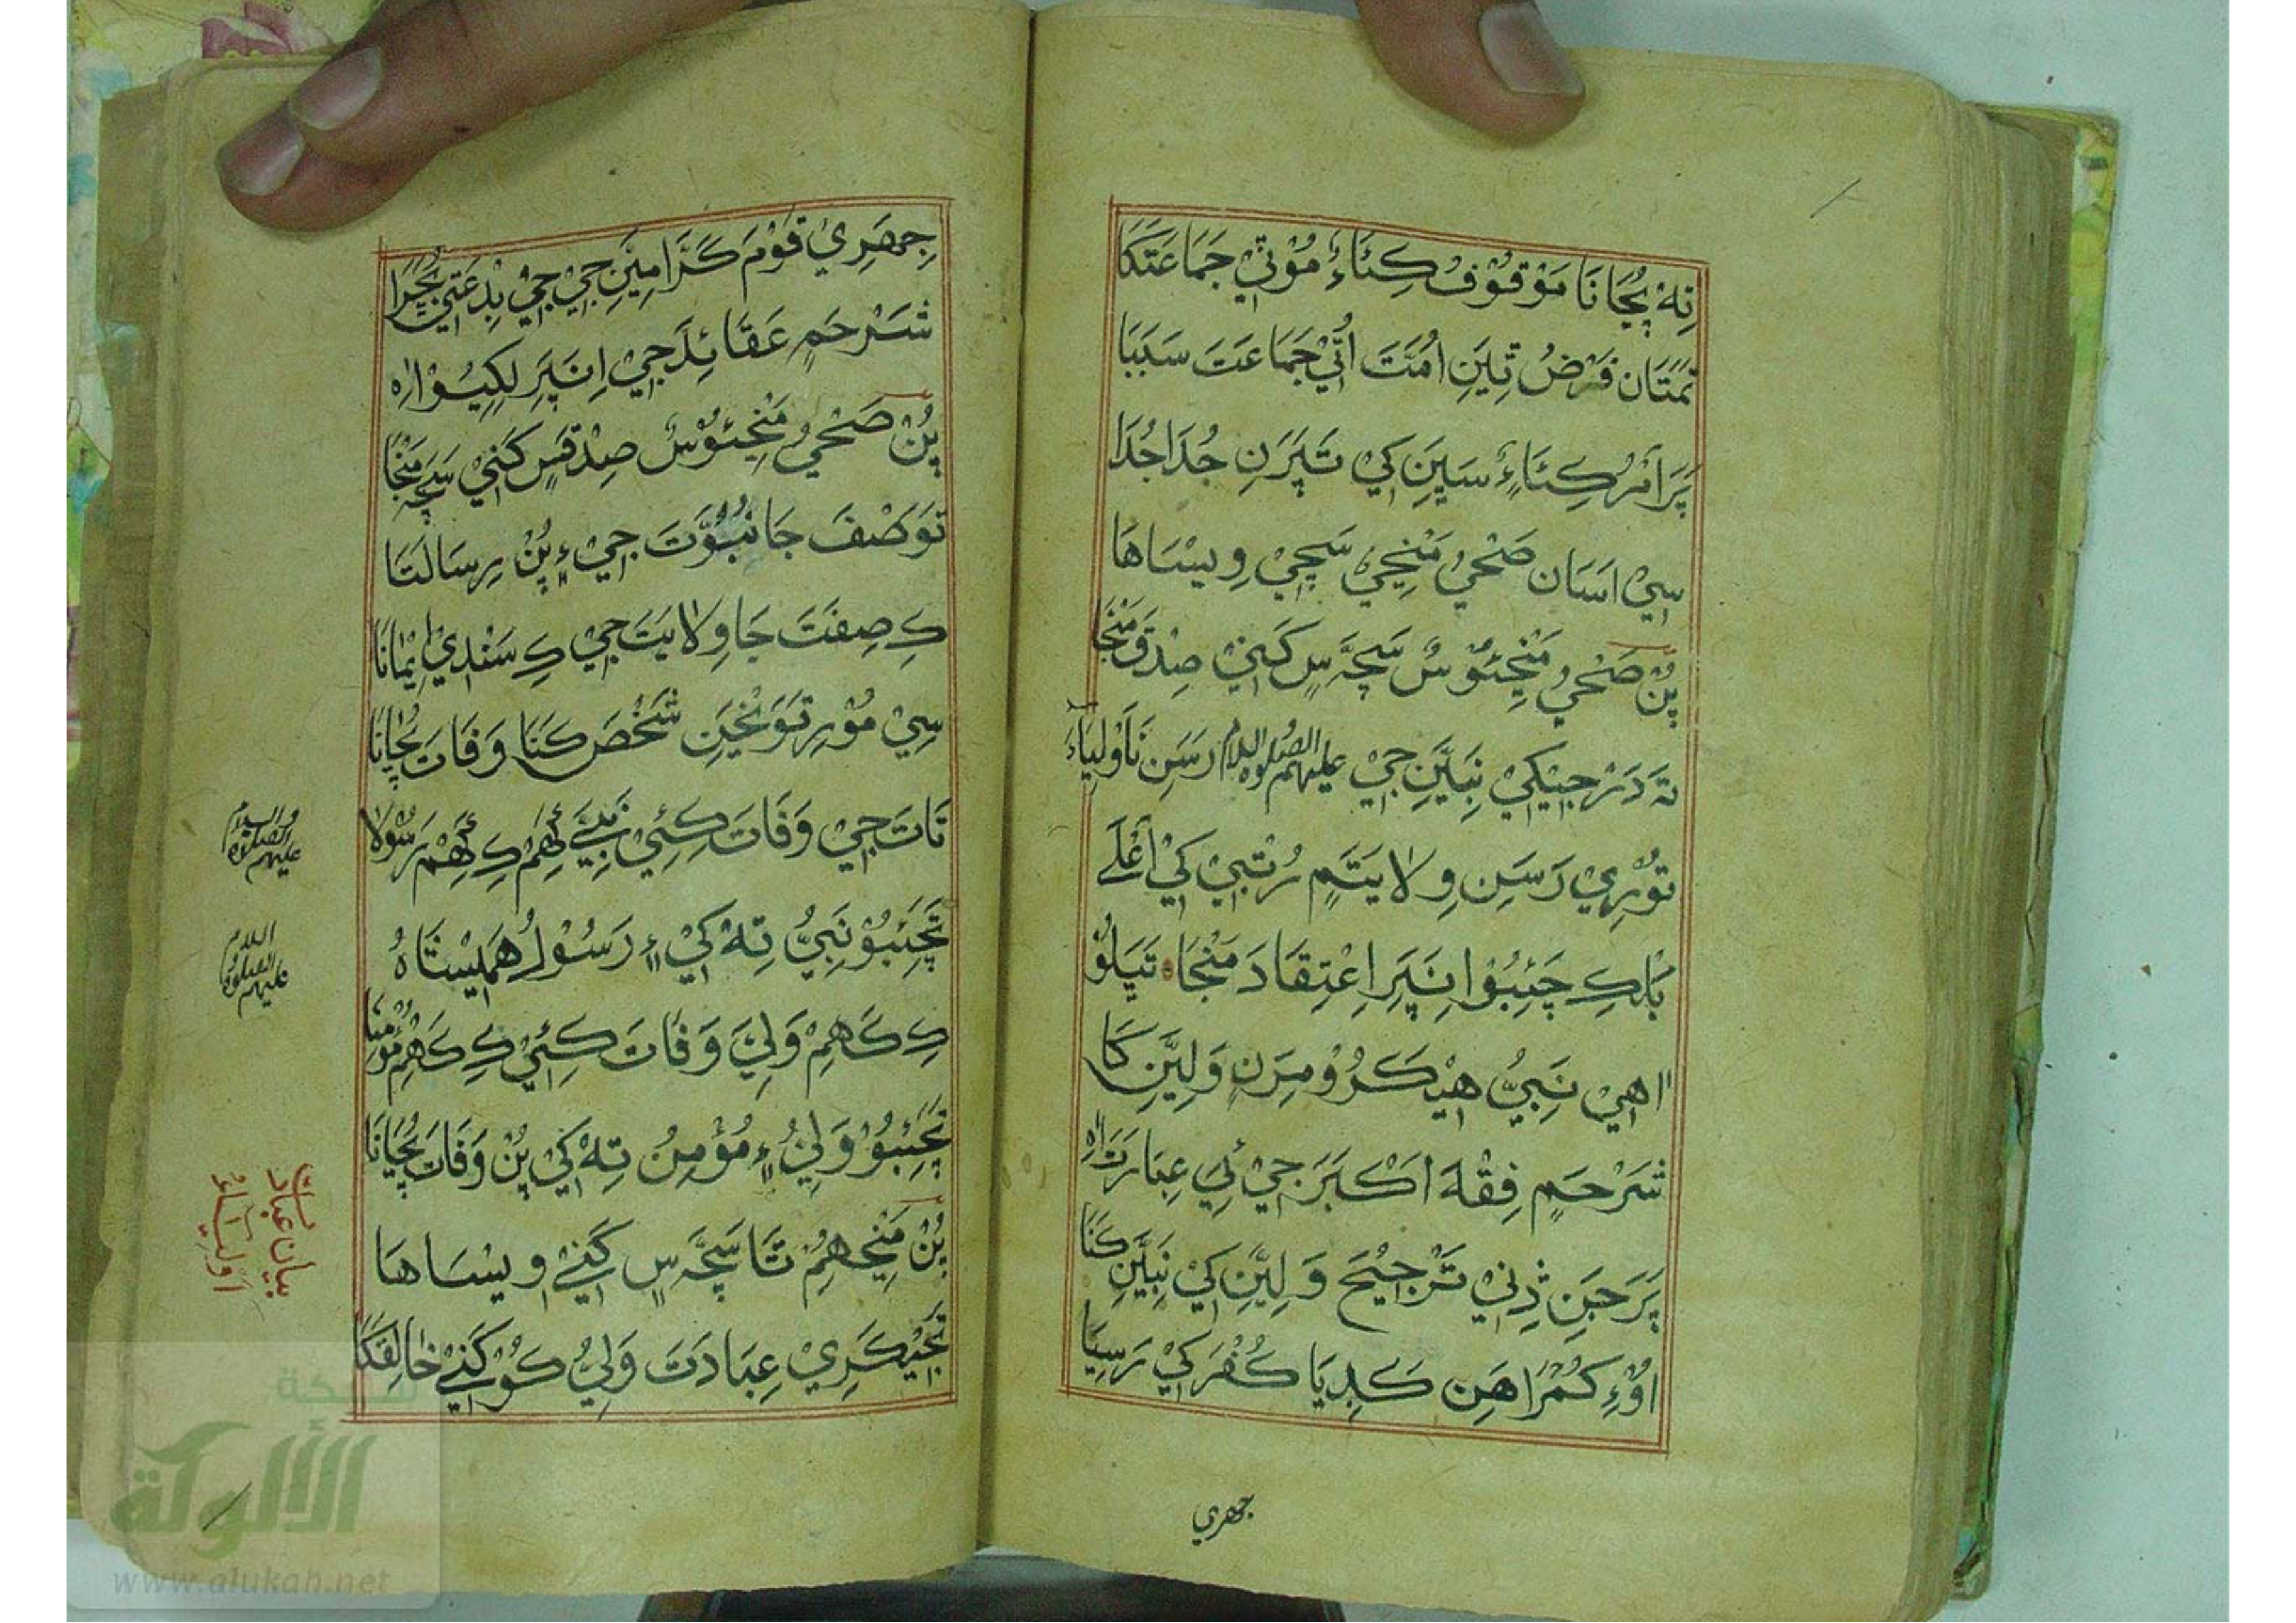 نِهْ پُڄَاڻَا مَوْقُوْفْ ڪِئَاءُ مُوْتِيْ جَمَاعَتَكَا
تمَّتَان فَرْضُ تِيَنِ اُمَّتَ اُتِيْ جَمَاعَتَ سَبَبَا
پَرَ اَمْرُ ڪِئَاءُ سَيِنِ كِيْ تَپَرَنِ جُدَا جُدَا
سِيْ اسَان صَحْيُ مَنْڃِيْ سَچِيْ وِيْسَاهَا
پُنْ صَحْيُ مَنْڃِئُوْسُ سَچَّسٍ كَنِيْ صِدْقَ مَنْجَا
تَہ دَرْجِيْكِيْ نَبِيَّنِ جِيْ عليهم الصلوة والسلام رَسَنِ نَاَوْلِيَاءَ
تُوْرِيْ رَسَنِ وِلَايَتَمٍ رُتْبِيْ كِيْ اَعْلَے
بَلڪِ چَئِبُوْ اِنَپَرِ اِعْتِقَادَ مَنْجَا تَيَلُوْ
اهِيْ نَبِيُّ هِيْكَرُوْ مِرَنِ وَلِيَّنِ كَا
شَرْحَمٍ فِقْهَ اَكْبَرَ جِيْ ئِيْ عِبَارَتَ اٰهِ
پَرَ جَنِ ڎِنِيْ تَرْجِيْحَ وَلِيَّنِ كِيْ نَبِيَّنِ كَنَا
اُوْءِ گُمْرَاهَن ڪَڍِيَا ڪُفْرَ كِيْ رَسِيَا
جهري
جِهَرِيْ قَوْمَ ڪَرَّامِيَّنِ جِيْ جِيْ بِدْعَتِيْ بُڇرَا
شَرْحَمٍ عَقَائِدَ جِيْ اِنَپَرِ لِكِيُوْ اٰہ
پُنْ صَحْيُ مَنْڃِئُوْسُ صِدْقَسٍ كَنِيْ سَچَہ مَنْجَا
تَوَصْفَ جَا نُبُوَّتَ جِيْ ءٍ پُنْ رِسَالَتَا
ڪِ صِفَتَ جَا وِلَايَتَ جِيْ ڪِ سَنْدِيْ اِيْمَانَا
سِيْ مُوْرِ تَوَڃَيِنِ شَخْصَ كَنَا وَفَات پُڄَاڻَا
تَات جِيْ وَفَاتَ ڪِئِيْ نَبِيَّے ڪَهِمْ ڪِ ڪَهِمْ رَسُوْلَا
تَچَئِبُوْ نَبِيُّ تِهْ كِيْ ءٍ رَسُوْلُ هَمِيْسَتَاہُ
ڪِ ڪَهِمْ وَلِيَّ وَفَاتَ ڪِئِيْ ڪِ ڪَهِمْ مُؤْمِنَا
تَچَئِبُوْ وَلِيُّ ءٍ مُؤْمِنُ تِهْ كِيْ پُنْ وَفَات پُڄَاڻَا
پُنْ مَنْڃِهِمُ تَا سَچَّسٍ كَنِيْ وِيْسَاهَا
تَجِيْڪَرِيْ عِبَادَتَ وَلِيُّ ڪُوْ كَنِيْ خَالِقَكَا
عليهم الصلوة والسلام
عليهم الصلوة السلام
بيان عبادت اوليـاءَ
شبكة
الألوكة
www.alukah.net